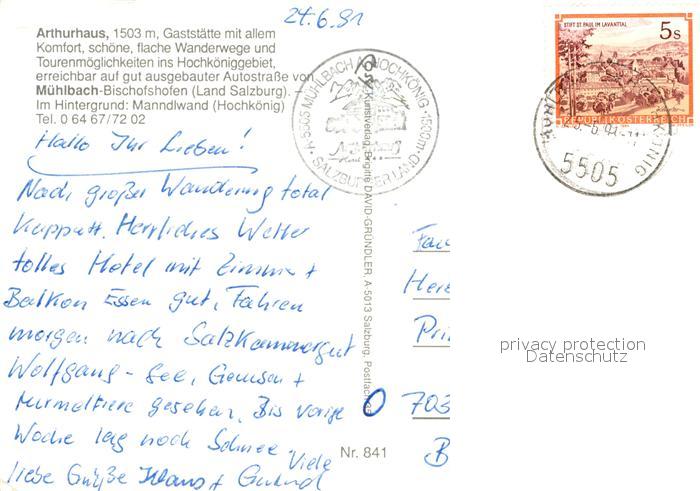 24.6.91
Arthurhaus, 1503 m, Gaststätte mit allem
Komfort, schöne, flache Wanderwege und
Tourenmöglichkeiten ins Hochköniggebiet,
erreichbar auf gut ausgebauter Autostraße von
Mühlbach-Bischofshofen (Land Salzburg).
Im Hintergrund: Manndlwand (Hochkönig)
Tel. 0 64 67/72 02
Hallo Ihr Lieben!
Nach großer Wanderung total
kapputt. Herrliches Wetter
tolles Hotel mit Zimmer +
Balkon Essen gut, Fahren
morgen nach Salzkammergut
Wolfgang-See, Gemsen +
Murmeltiere gesehen. Bis vorige
Woche lag noch Schnee. Viele
liebe Grüße Klaus +
A-5505 MÜHLBACH A. HOCHKÖNIG 1500m
SALZBURGER LAND
Kunstverlag, Brigitte DAVID-GRÜNDLER, A-5013 Salzburg, Postfach
Nr. 841
STIFT ST. PAUL IM LAVANTTAL
5 S
REPUBLIK ÖSTERREICH
5505
703
B
privacy protection
Datenschutz